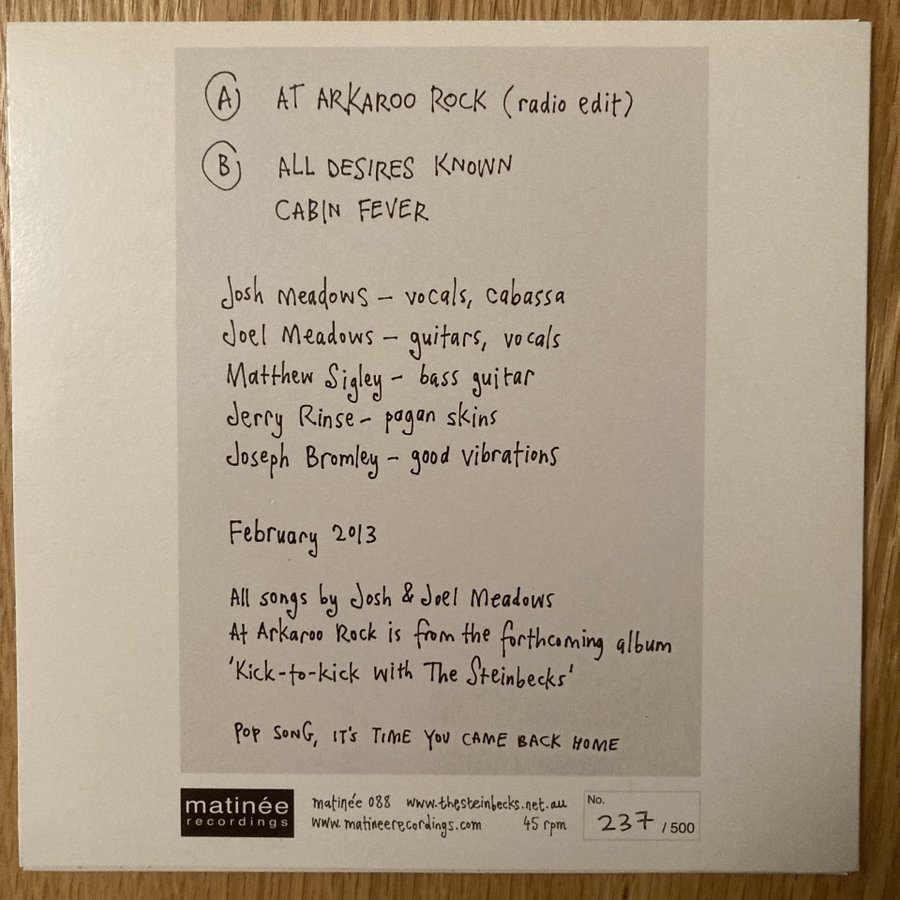 A AT ARKAROO ROCK (radio edit)
B ALL DESIRES KNOWN
CABIN FEVER
Josh Meadows – vocals, cabassa
Joel Meadows – guitars, vocals
Matthew Sigley – bass guitar
Jerry Rinse – pagan skins
Joseph Bromley – good vibrations
February 2013
All songs by Josh & Joel Meadows
At Arkaroo Rock is from the forthcoming album
'Kick-to-kick with The Steinbecks'
POP SONG, IT'S TIME YOU CAME BACK HOME
matinée
recordings
matinée 088 www.thesteinbecks.net.au
www.matineerecordings.com 45 rpm
No.
237 / 500